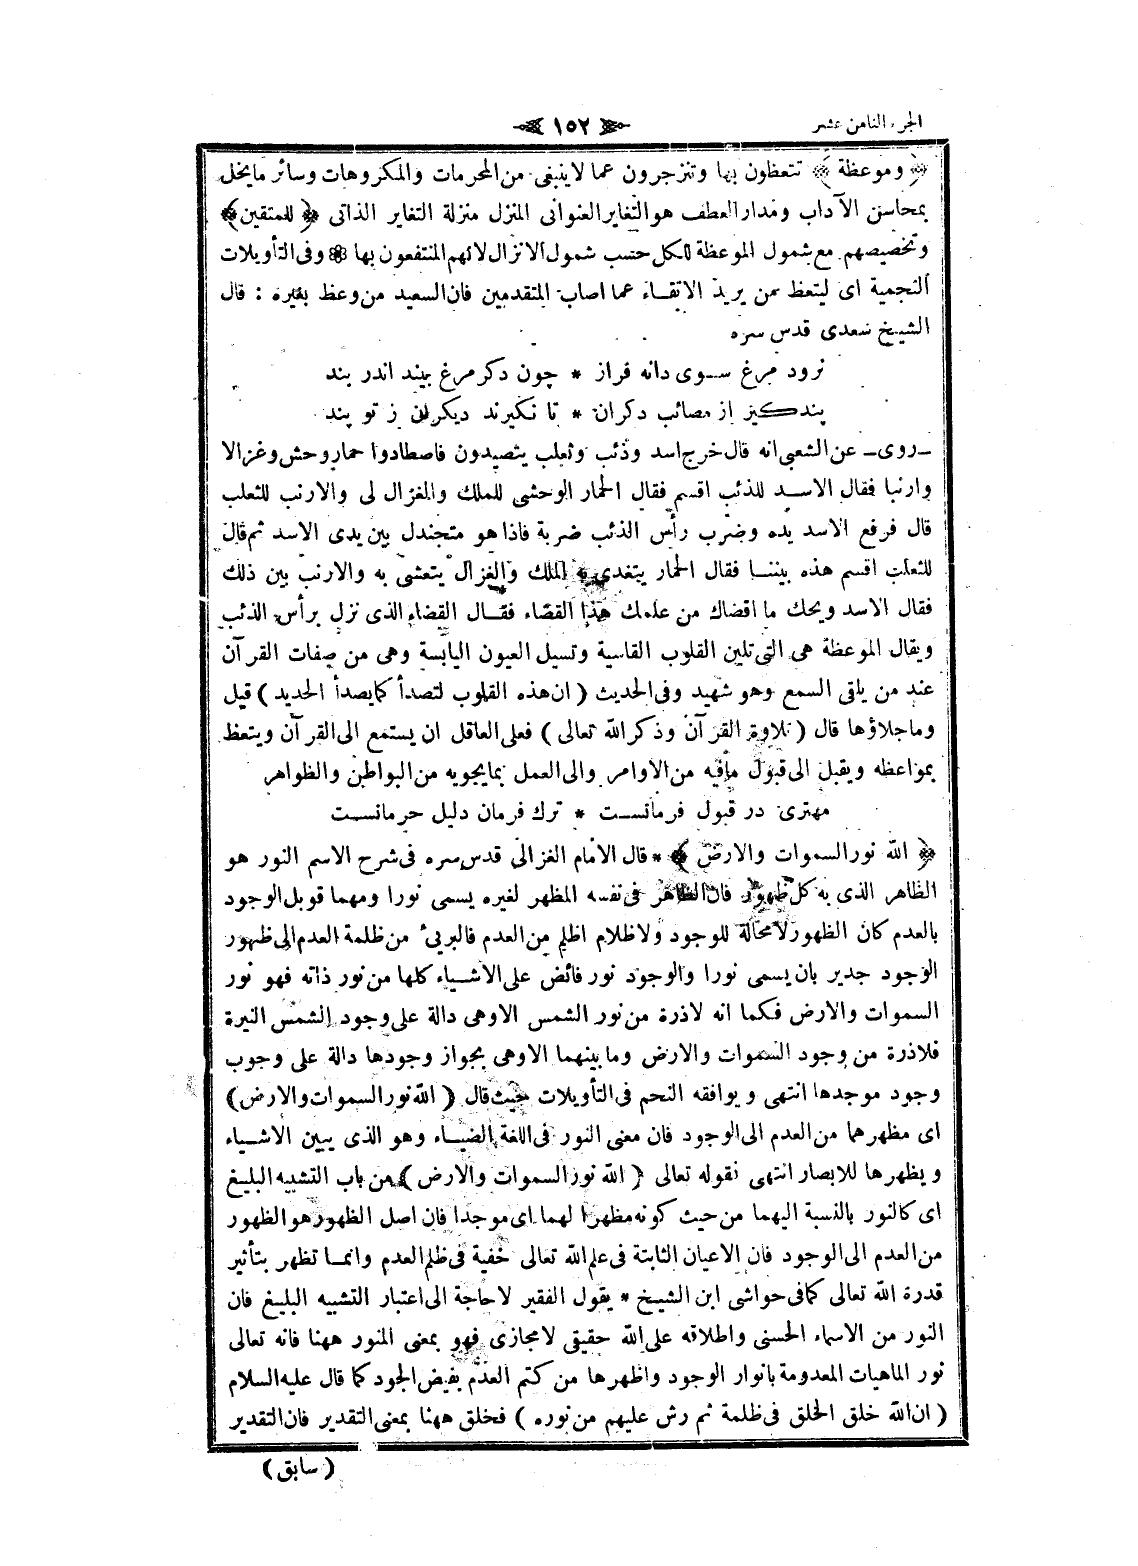 الجزء الثامن عشر
١٥٢
﴿ وموعظة ﴾ تتعظون بها وتنزجرون عما لاينبغى من المحرمات والمكروهات وسائر مايخل
بمحاسن الآداب ومدار العطف هو التغاير العنوانى المنزل منزلة التغاير الذاتى ﴿ للمتقين ﴾
وتخصيصهم مع شمول الموعظة للكل حسب شمول الانزال لانهم المنتفعون بها ❁ وفى التأويلات
النجمية اى ليتعظ من يريد الاتقاء عما اصاب المتقدمين فان السعيد من وعظ بغيره : قال
الشيخ سعدى قدس سره
نرود مرغ سوى دانه فراز * چون دكر مرغ بيند اندر بند
پندكير از مصائب دكران * تا نكيرند ديكران ز تو پند
ـ روى ـ عن الشعبى انه قال خرج اسد وذئب وثعلب يتصيدون فاصطادوا حمار وحش وغزالا
وارنبا فقال الاسد للذئب اقسم فقال الحمار الوحشى للملك والغزال لى والارنب للثعلب
قال فرفع الاسد يده وضرب رأس الذئب ضربة فاذا هو متجندل بين يدى الاسد ثم قال
للثعلب اقسم هذه بيننا فقال الحمار يتغدى به الملك والغزال يتعشى به والارنب بين ذلك
فقال الاسد ويحك ما اقضاك من علمك هذا القضاء فقال القضاء الذى نزل برأس الذئب
ويقال الموعظة هى التى تلين القلوب القاسية وتسيل العيون اليابسة وهى من صفات القرآن
عند من يلقى السمع وهو شهيد وفى الحديث ( ان هذه القلوب لتصدأ كما يصدأ الحديد ) قيل
وماجلاؤها قال ( تلاوة القرآن وذكر الله تعالى ) فعلى العاقل ان يستمع الى القرآن ويتعظ
بمواعظه ويقبل الى قبول مافيه من الاوامر والى العمل بمايحويه من البواطن والظواهر
مهترى در قبول فرمانست * ترك فرمان دليل حرمانست
﴿ الله نور السموات والارض ﴾ * قال الامام الغزالى قدس سره فى شرح الاسم النور هو
الظاهر الذى به كل ظهور فان الظاهر فى نفسه المظهر لغيره يسمى نورا ومهما قوبل الوجود
بالعدم كان الظهور لامحالة للوجود ولاظلام اظلم من العدم فالبرئ من ظلمة العدم الى ظهور
الوجود جدير بان يسمى نورا والوجود نور فائض على الاشياء كلها من نور ذاته فهو نور
السموات والارض فكما انه لاذرة من نور الشمس الاوهى دالة على وجود الشمس النيرة
فلاذرة من وجود السموات والارض ومابينهما الاوهى بجواز وجودها دالة على وجوب
وجود موجدها انتهى ويوافقه النجم فى التأويلات حيث قال ( الله نور السموات والارض )
اى مظهرهما من العدم الى الوجود فان معنى النور فى اللغة الضياء وهو الذى يبين الاشياء
ويظهرها للابصار انتهى فقوله تعالى ( الله نور السموات والارض ) من باب التشبيه البليغ
اى كالنور بالنسبة اليهما من حيث كونه مظهرا لهما اى موجدا فان اصل الظهور هو الظهور
من العدم الى الوجود فان الاعيان الثابتة فى علم الله تعالى خفية فى ظلم العدم وانما تظهر بتأثير
قدرة الله تعالى كما فى حواشى ابن الشيخ * يقول الفقير لاحاجة الى اعتبار التشبيه البليغ فان
النور من الاسماء الحسنى واطلاقه على الله حقيقى لامجازى فهو بمعنى المنور ههنا فانه تعالى
نور الماهيات المعدومة بانوار الوجود واظهرها من كتم العدم بفيض الجود كما قال عليه السلام
( ان الله خلق الخلق فى ظلمة ثم رش عليهم من نوره ) فخلق ههنا بمعنى التقدير فان التقدير
( سابق )